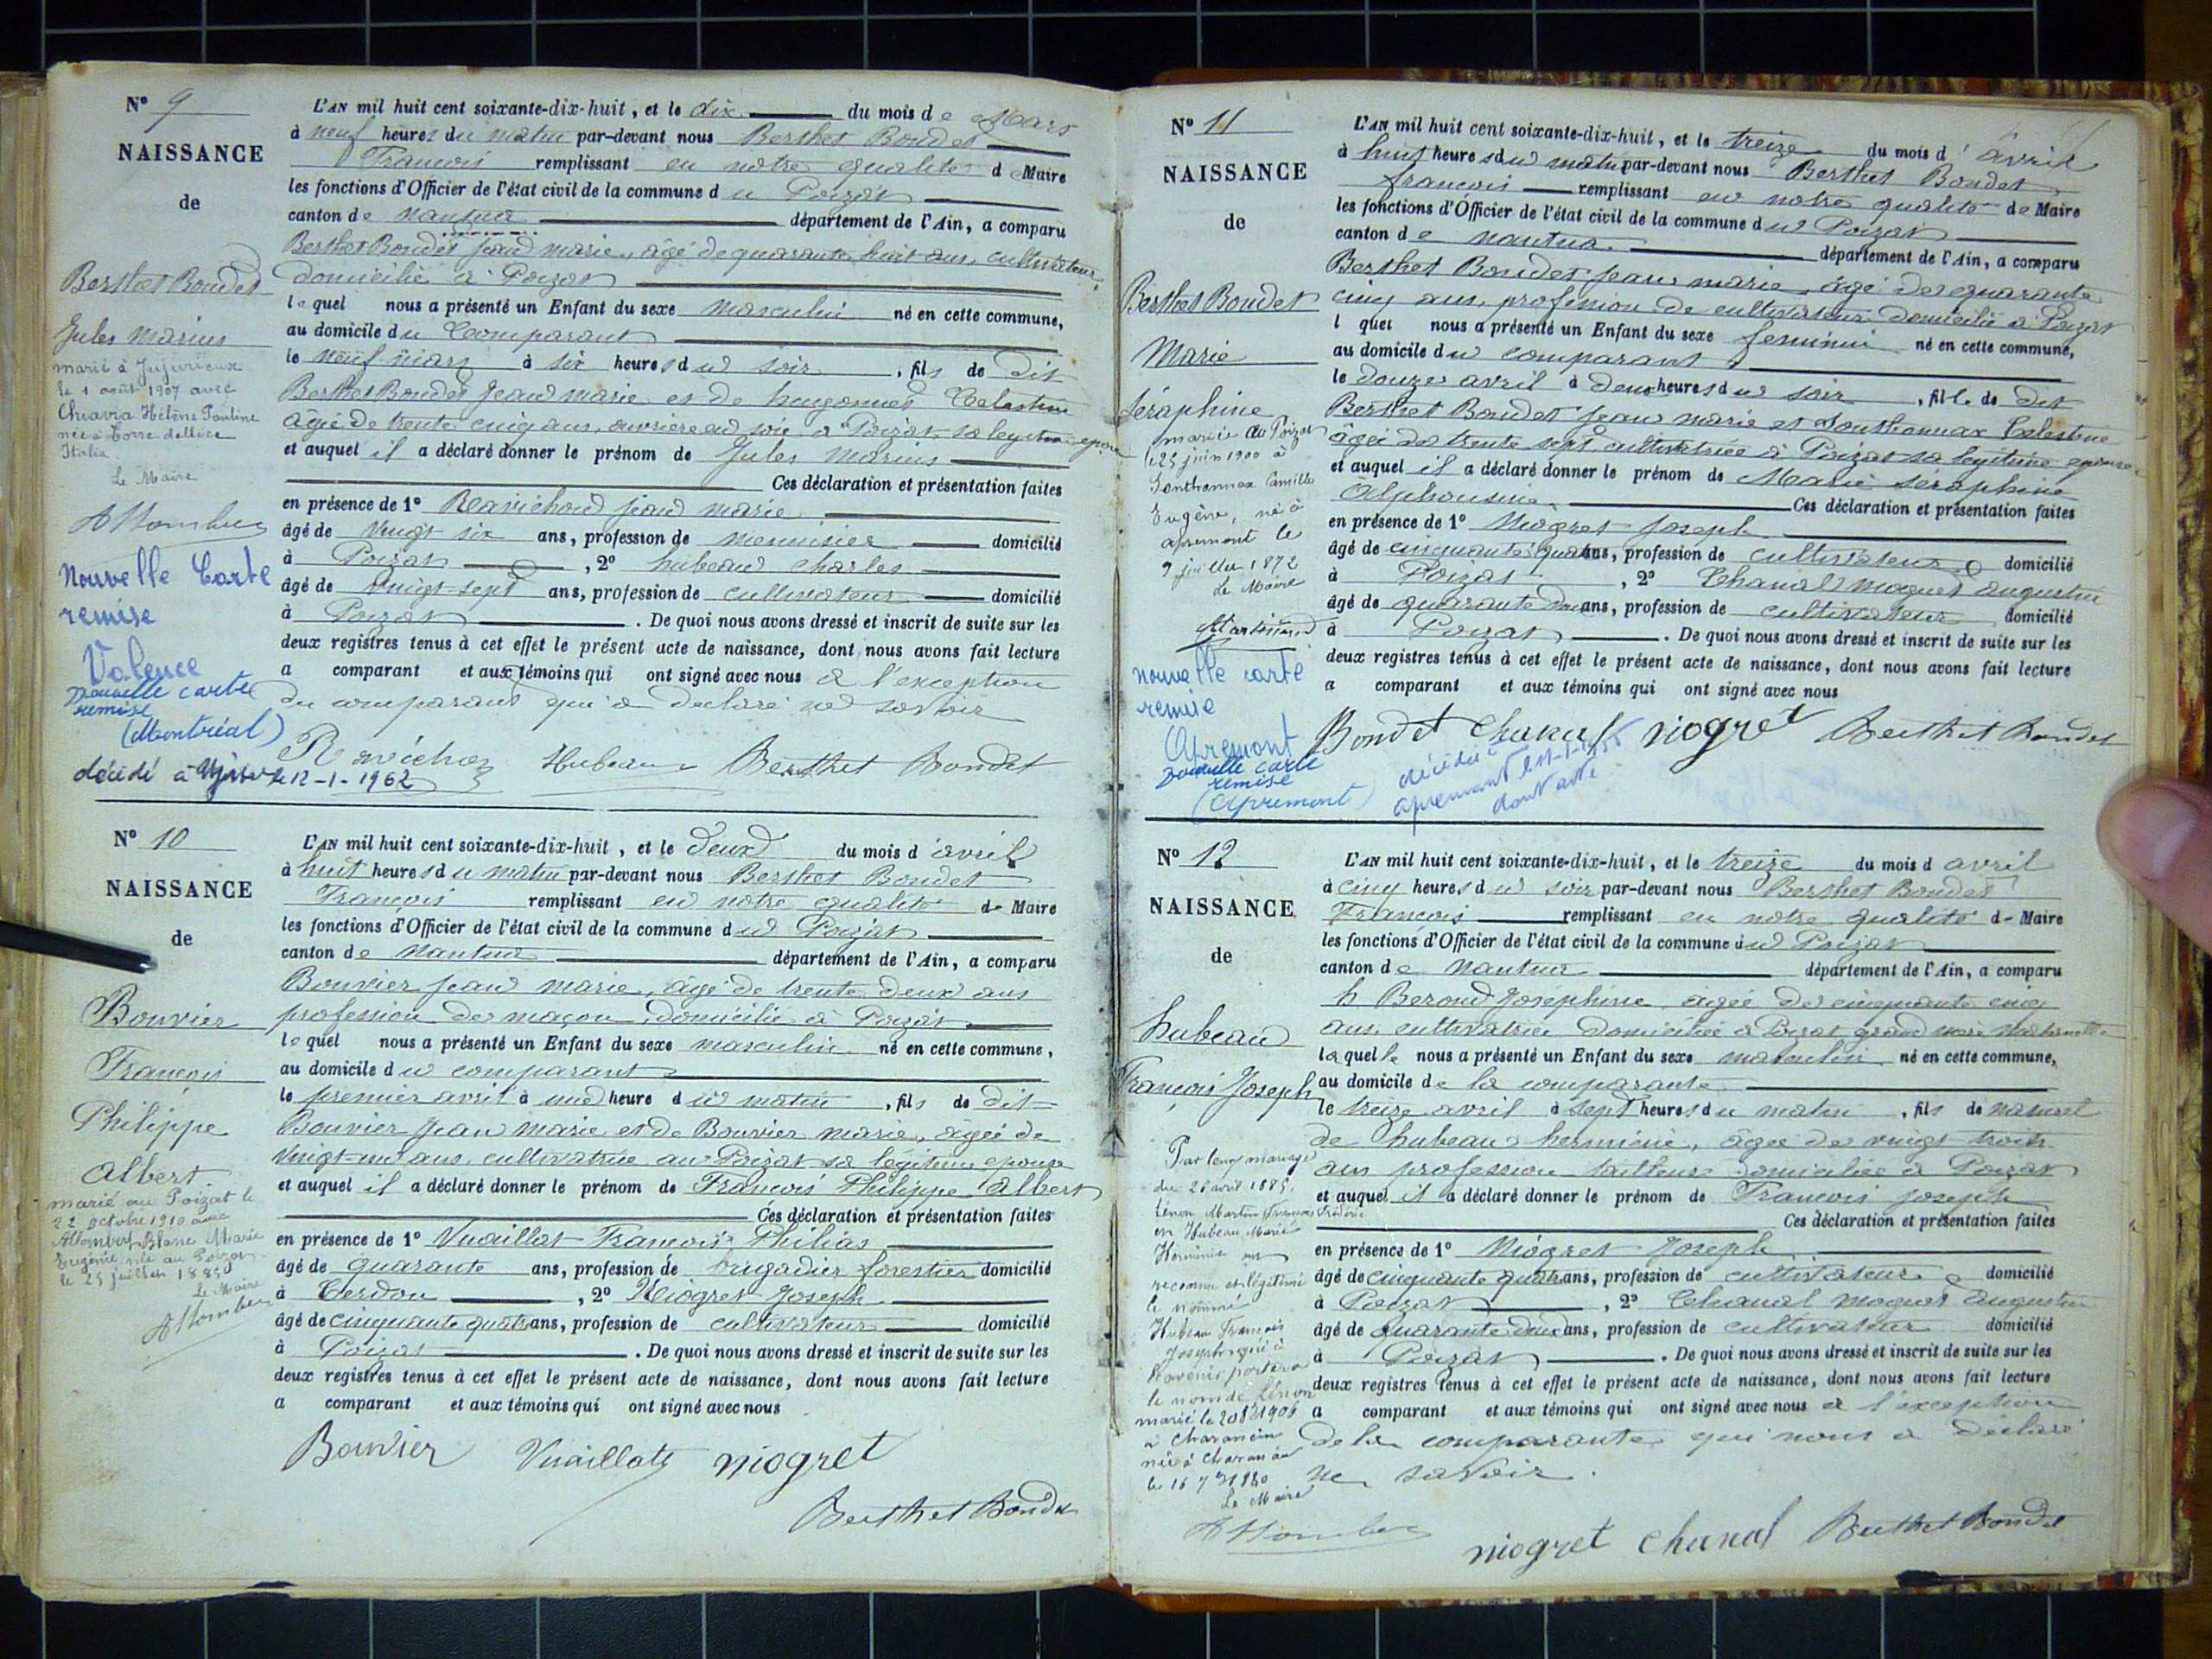 N° 9
NAISSANCE
de
Berthet Boudet
Jules Marius
marié à Jujurieux
le 1 août 1907 avec
Chiavia Hélène Pauline
née à Torre dellice
Italie.
Le Maire
Nouvelle Carte
remise
Valence
nouvelle carte
remise
(Montréal)
décédé à le 12-1-1962
L'AN mil huit cent soixante-dix-huit, et le dix du mois de Mars
à neuf heures du matin par-devant nous Berthet Boudet
François remplissant en notre qualité d Maire
les fonctions d'Officier de l'état civil de la commune du Poizat
canton de Nantua département de l'Ain, a comparu
Berthet Boudet jean marie, âgé de quarante huit ans, cultivateur
domicilié à Poizat
lequel nous a présenté un Enfant du sexe masculin né en cette commune,
au domicile du Comparant
le neuf mars à six heures du soir, fils de dit
Berthet Boudet jean marie et de hugonnet Celestine
âgée de trente cinq ans, ouvrière en soie a Poizat, sa legitime epouse
et auquel il a déclaré donner le prénom de Jules Marius
Ces déclaration et présentation faites
en présence de 1° Ravichoud jean marie
âgé de vingt six ans, profession de menuisier domicilié
à Poizat, 2° hubeaud charles
âgé de vingt-sept ans, profession de cultivateur domicilié
à Poizat. De quoi nous avons dressé et inscrit de suite sur les
deux registres tenus à cet effet le présent acte de naissance, dont nous avons fait lecture
a comparant et aux témoins qui ont signé avec nous a l'exception
du comparant qui a declaré ne savoir
Hubeau Berthet Bondet
N° 10
NAISSANCE
de
Bouvier
François
Philippe
Albert.
marié au Poizat le
22 octobre 1910 avec
Allombert-Blanc Marie
Eugénie née au Poizat
le 25 juillet 1885
Le Maire
L'AN mil huit cent soixante-dix-huit, et le deux du mois d'avril
à huit heures du matin par-devant nous Berthet Boudet
François remplissant en notre qualité de Maire
les fonctions d'Officier de l'état civil de la commune du Poizat
canton de Nantua département de l'Ain, a comparu
Bouvier jean marie, âgé de trente deux ans
profession de maçon, domicilié à Poizat
lequel nous a présenté un Enfant du sexe masculin né en cette commune,
au domicile du comparant
le premier avril à une heure du matin, fils de dit
Bouvier jean marie et de Bouvier marie, âgée de
vingt-un ans, cultivatrice au Poizat sa légitime epouse
et auquel il a déclaré donner le prénom de François Philippe Albert
Ces déclaration et présentation faites
en présence de 1° Vuaillat François Philias
âgé de quarante ans, profession de brigadier forestier domicilié
à Cerdon, 2° Niogret Joseph
âgé de cinquante quatre ans, profession de cultivateur domicilié
à Poizat. De quoi nous avons dressé et inscrit de suite sur les
deux registres tenus à cet effet le présent acte de naissance, dont nous avons fait lecture
a comparant et aux témoins qui ont signé avec nous
Bouvier Vuaillat niogret
Berthet Bondet
N° 11
NAISSANCE
de
Berthet Boudet
Marie
Séraphine
mariée au Poizat
le 25 juin 1900 à
Gonthonnax Camille
Eugène, né à
apremont le
9 juillet 1872
Le Maire
nouvelle carte
remise
Apremont
nouvelle carte
remise
(Apremont)
L'AN mil huit cent soixante-dix-huit, et le treize du mois d'avril
à huit heures du matin par-devant nous Berthet Boudet
françois remplissant en notre qualité de Maire
les fonctions d'Officier de l'état civil de la commune du Poizat
canton de nantua département de l'Ain, a comparu
Berthet Boudet jean marie, âgé de quarante
cinq ans, profession de cultivateur domicilié à Poizat
l quel nous a présenté un Enfant du sexe feminin né en cette commune,
au domicile du comparant
le douze avril à deux heures du soir, fille de dit
Berthet Boudet jean marie et Gonthonnax Celestine
âgée de trente sept, cultivatrice à Poizat sa legitime epouse
et auquel il a déclaré donner le prénom de Marie séraphine
Alphonsine Ces déclaration et présentation faites
en présence de 1° Niogret Joseph
âgé de cinquante quatre ans, profession de cultivateur domicilié
à Poizat, 2° Chanal moquet augustin
âgé de quarante deux ans, profession de cultivateur domicilié
à Poizat. De quoi nous avons dressé et inscrit de suite sur les
deux registres tenus à cet effet le présent acte de naissance, dont nous avons fait lecture
a comparant et aux témoins qui ont signé avec nous
Bondet Chanal niogret Berthet Bondet
décédée à
apremont le
dont acte.
N° 12
NAISSANCE
de
hubeaud
François Joseph
Par leur mariage
du 28 avril 1885,
Lénon Martin François Frédéric
et Hubeau Marie
Herminie ont
reconnu et légitimé
le nommé
Hubeau François
Joseph qui à
l'avenir portera
le nom de Lénon
marié le 20 8 1906
à Charancin
née à Charancin
le 16 7 1880
Le Maire
L'AN mil huit cent soixante-dix-huit, et le treize du mois d avril
à cinq heures du soir par-devant nous Berthet Boudet
François remplissant en notre qualité de Maire
les fonctions d'Officier de l'état civil de la commune du Poizat
canton de Nantua département de l'Ain, a comparu
h Beroud Joséphine, âgée de cinquante cinq
ans, cultivatrice domiciliée à Poizat grand mère maternelle
laquelle nous a présenté un Enfant du sexe masculin né en cette commune,
au domicile de la comparante
le treize avril à sept heures du matin, fils de naturel
de hubeaud herminie, âgée de vingt trois
ans profession tailleuse domiciliée à Poizat
et auquel il a déclaré donner le prénom de Francois joseph
Ces déclaration et présentation faites
en présence de 1° Niogret Joseph
âgé de cinquante quatre ans, profession de cultivateur domicilié
à Poizat, 2° Chanal moquet Augustin
âgé de Quarante deux ans, profession de cultivateur domicilié
à Poizat. De quoi nous avons dressé et inscrit de suite sur les
deux registres tenus à cet effet le présent acte de naissance, dont nous avons fait lecture
a comparant et aux témoins qui ont signé avec nous a l'exception
de la comparante qui nous a déclaré
ne savoir.
niogret Chanal Berthet Bondet